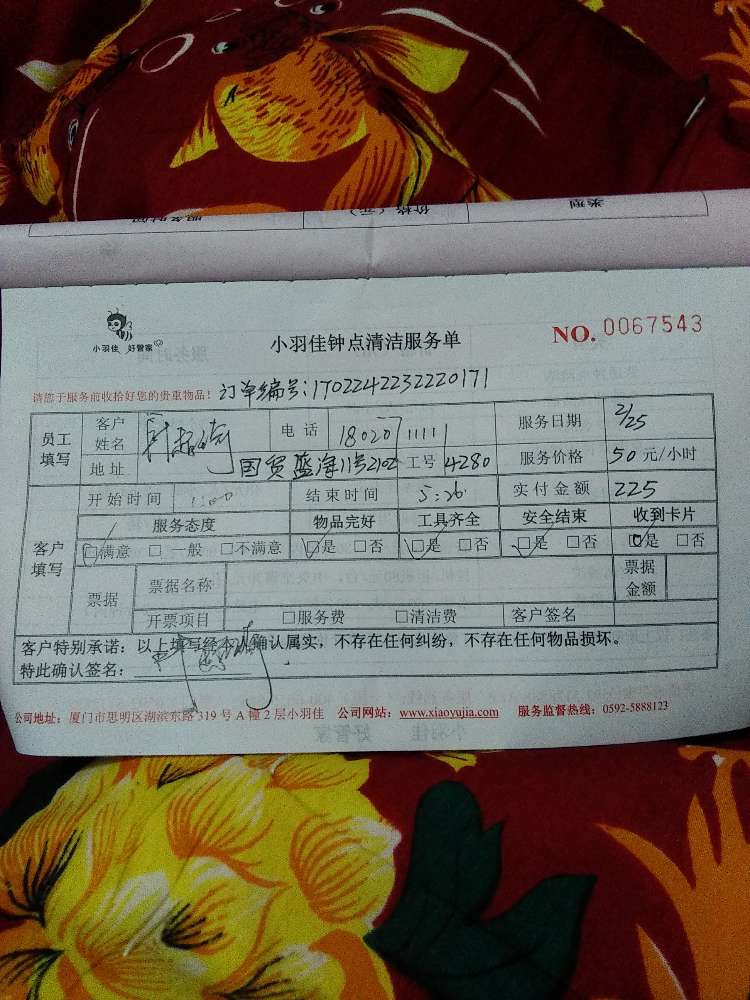 服务时间 价格（元） 类型
小羽佳 好管家
小羽佳钟点清洁服务单
NO. 0067543
请您于服务前收拾好您的贵重物品！ 订单编号：1702242232220171
员工填写 客户姓名 电话 18020711111 服务日期 2/25
地址 国贸蓝海11号2102 工号 4280 服务价格 50 元/小时
客户填写 开始时间 结束时间 5:26 实付金额 225
服务态度 物品完好 工具齐全 安全结束 收到卡片
□满意 □一般 □不满意 □是 □否 □是 □否 □是 □否 □是 □否
票据 票据名称 票据金额
开票项目 □服务费 □清洁费 客户签名
客户特别承诺：以上填写经本人确认属实，不存在任何纠纷，不存在任何物品损坏。
特此确认签名：
公司地址：厦门市思明区湖滨东路 319 号 A 幢 2 层小羽佳 公司网站：www.xiaoyujia.com 服务监督热线：0592-5888123